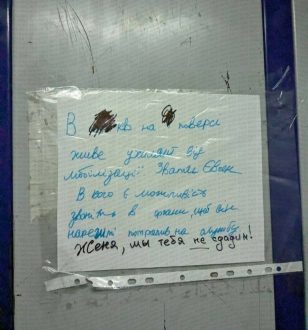 В кв на поверсі
живе ухилянт від
мобілізації Звати Євген
В кого є можливість
дзвоніть в, щоб він
нарешті потрапив на службу
Женя, мы тебя не сдадим!